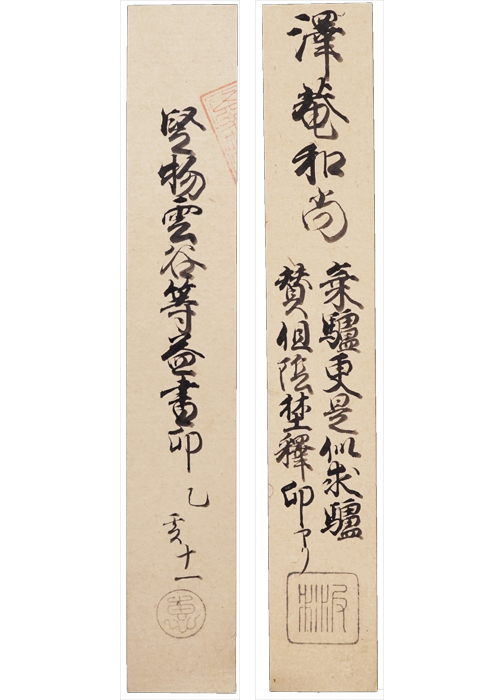 澤菴和尚
乗驢更是似求驢
賛但陰埜釋印アリ
竪物雲谷等益畫印
乙
亥十一